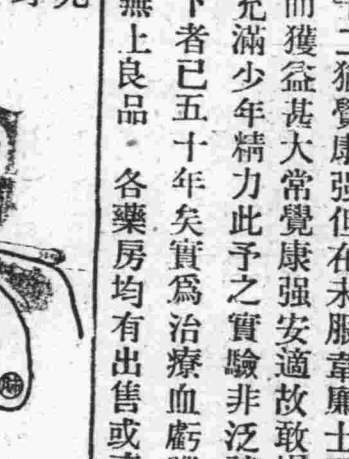 二猶覺康强但在未服韋廉士
而獲益甚大常覺康强安適故敢
充滿少年精力此予之實驗非泛
下者已五十年矣實爲治療血虧
無上良品 各藥房均有出售或
肺